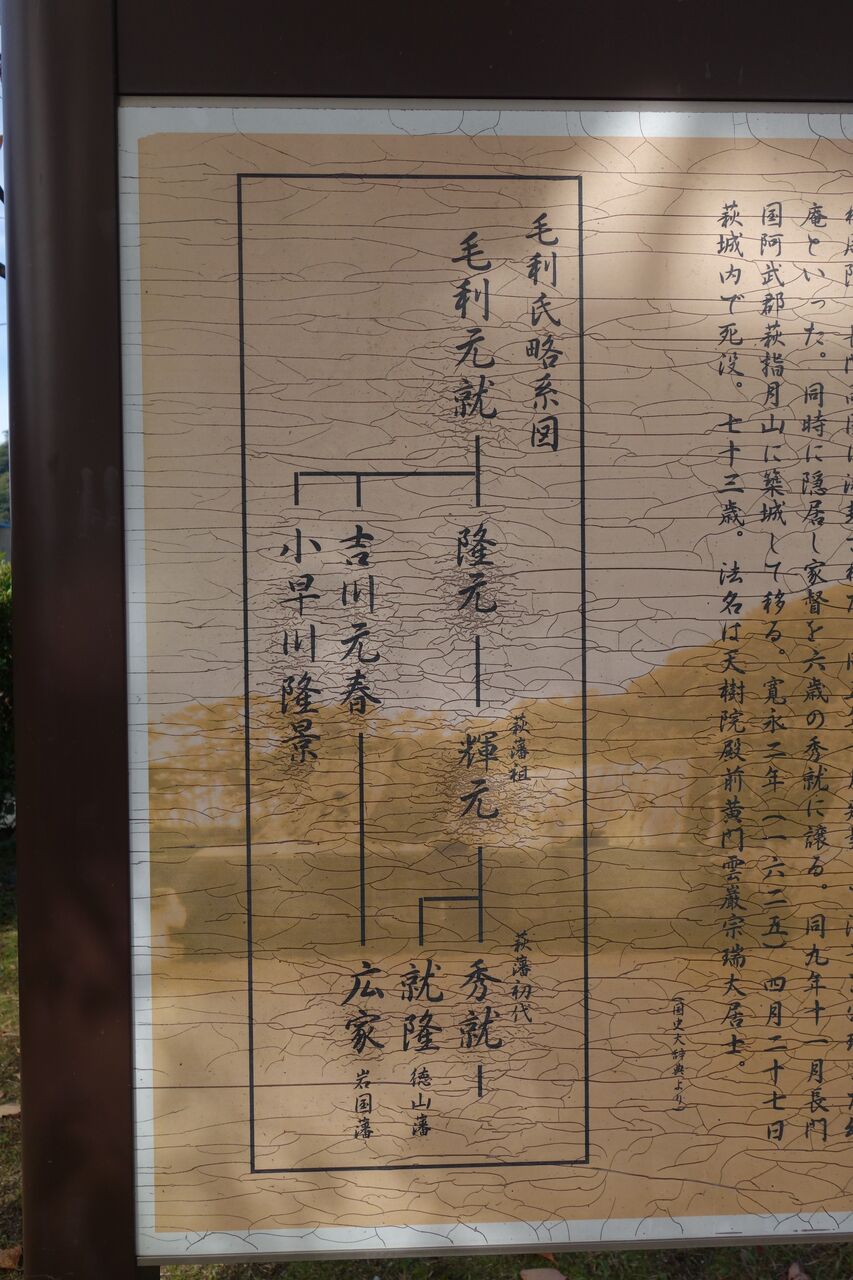 庵といった。同時に隠居し家督を六歳の秀就に譲る。同九年十一月長門
国阿武郡萩指月山に築城して移る。寛永二年(一六二五)四月二十七日
萩城内で死没。七十三歳。法名は天樹院殿前黄門雲巌宗瑞大居士。
(国史大辞典より)
毛利氏略系図
毛利元就
隆元
萩藩祖
輝元
萩藩初代
秀就
就隆 徳山藩
吉川元春
広家 岩国藩
小早川隆景